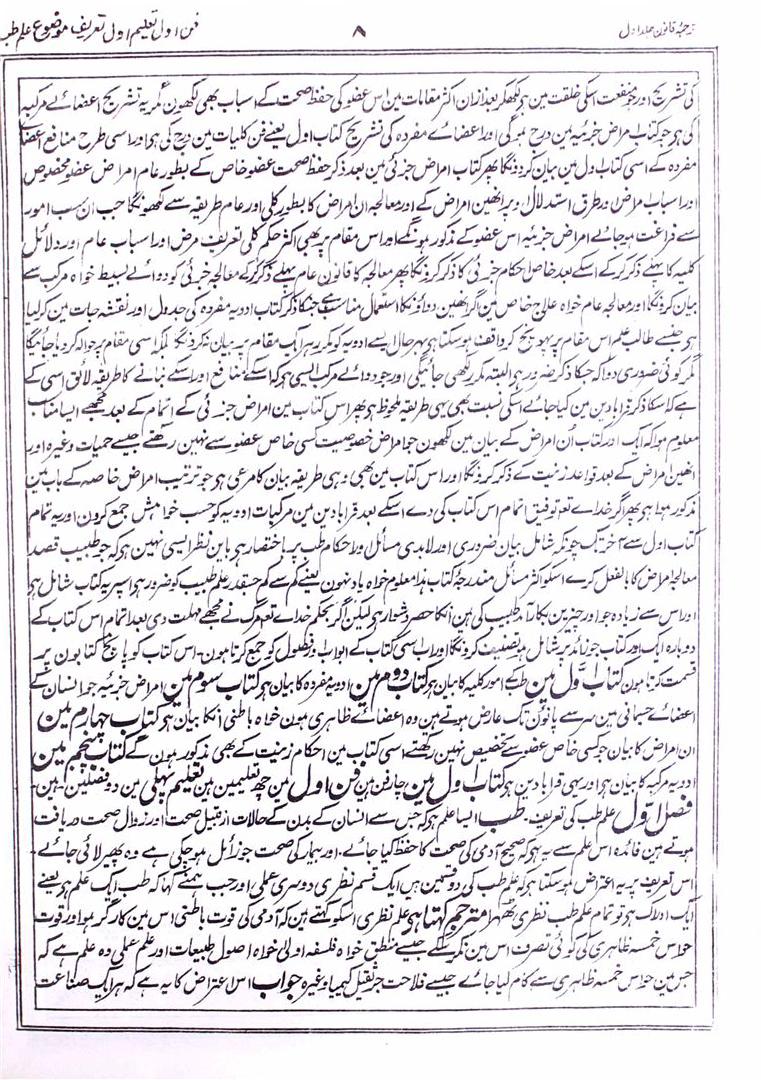 ترجمۂ قانون جلد اول ۸ فن اول تعلیم اول تعریف موضوع علم طب
کی تشریح اور جو منفعت اسکی خلقت مین ہو لکھکر بعد ازان اکثر مقامات مین اس عضو کی حفظ صحت کے اسباب بھی لکھون گمر یہ تشریح اعضائے مرکبہ
کی ہو جو کتاب امراض جزئیہ مین درج ہو گی اور اعضائے مفردہ کی تشریح کتاب اول یعنے فن کلیات مین درج ہوئی ہو اور اسی طرح منافع اعضائے
مفردہ کے اسی کتاب اول مین بیان کردونگا پھر کتاب امراض جزئی مین بعد ذکر حفظ صحت عضو خاص کے بطور عام امراض عضو مخصوص
اور اسباب امراض اور طرق استدلال اوپر انھین امراض کے اور معالجہ ان امراض کا بطور کلی اور عام طریقہ سے لکھونگا جب ان سب امور
سے فراغت ہو جائے امراض جزئیہ اس عضو کے مذکور ہونگے اور اس مقام پر بھی اکثر حکم کلی تعریف مرض اور اسباب عام اور دلائل
کلیہ کا پہلے ذکر کرکے اسکے بعد خاص احکام جزئی کا ذکر کرونگا پھر معالجہ کا قانون عام پہلے ذکر کرکے معالجہ جزئی کو دوائے بسیط خواہ مرکب سے
بیان کرونگا اور معالجہ عام خواہ علاج خاص مین اگر انھین دواؤنکا استعمال مناسب ہے جنکا ذکر کتاب ادویہ مفردہ کی جدول اور نقشہ جات مین کر لیا
ہو جیسے طالب علم اس مقام پر پہونچ کر واقف ہو سکتا ہو بہر حال ایسے ادویہ کو مکرر ہر ایک مقام پر بیان نہ کرونگا بلکہ اسی مقام پر حوالہ کر دیا جائیگا
مگر کوئی ضروری دوا کہ جسکا ذکر ضرور ہو البتہ مکرر لکھی جائیگی اور جو دوائے مرکب ایسی ہو کہ اسکے منافع اور اسکے بنانے کا طریقہ لائق اسی کے
ہے کہ اسکا ذکر قرابادین مین کیا جائے اسکی نسبت بھی یہی طریقہ ملحوظ ہو پھر اس کتاب مین امراض جزئی کے اتمام کے بعد مجھے ایسا مناسب
معلوم ہوا کہ ایک اور کتاب اُن امراض کے بیان مین لکھون جو امراض خصوصیت کسی خاص عضو سے نہین رکھتے جیسے حمیات وغیرہ اور
انھین امراض کے بعد قواعد زینت کے ذکر کرونگا اور اس کتاب مین بھی وہی طریقہ بیان کا مرعی ہو جو ترتیب امراض خاصہ کے باب مین
مذکور ہوا ہو پھر اگر خداے تعہ توفیق اتمام اس کتاب کی دے اسکے بعد قرابادین مین مرکبات ادویہ کو حسب خواہش جمع کرون اور یہ تمام
کتاب اول سے آخر تک چونکہ شامل بیان ضروری اور لابدی مسائل اور احکام طب پر باختصار ہو باین نظر ایسی نہین ہو کہ جو طبیب قصد
معالجۂ امراض کا بالفعل کرے اسکو اکثر مسائل مندرجۂ کتاب ہذا معلوم خواہ یاد نہون یعنے کم سے کم جسقدر علم طبیب کو ضرور ہو اسپر یہ کتاب شامل ہو
اور اس سے زیادہ جو اور چیزین بکار آمد طبیب کی ہین انکا حصر دشوار ہو لیکن اگر بحکم خداے تعہ مرگ نے مجھے مہلت دی بعد اتمام اس کتاب کے
دوبارہ ایک اور کتاب جو زائد پر شامل ہو تصنیف کرونگا اور اب اسی کتاب کے ابواب و فصلون کو جمع کرتا ہون۔ اس کتاب کو پانچ کتابون پر
قسمت کرتا ہون کتاب اول مین طب کے امور کلیہ کا بیان ہو کتاب دوم مین ادویہ مفردہ کا بیان ہو کتاب سوم مین امراض جزئیہ جو انسان کے
اعضائے جسمانی مین سر سے پانؤن تک عارض ہوتے ہین وہ اعضائے ظاہری ہون خواہ باطنی انکا بیان ہو کتاب چہارم مین
ان امراض کا بیان جو کسی خاص عضو سے تخصیص نہین رکھتے اسی کتاب مین احکام زینت کے بھی مذکور ہون گے کتاب پنجم مین
ادویہ مرکبہ کا بیان ہو اور یہی قرابادین ہو کتاب اول مین چار فن ہین فن اول مین چھ تعلیمین ہین تعلیم پہلی مین دو فصلین ہین۔
فصل اول علم طب کی تعریف۔ طب ایسا علم ہو کہ جس سے انسان کے بدن کے حالات از قبیل صحت اور زوال صحت دریافت
ہوتے ہین فائدہ اس علم سے یہ ہو کہ صحیح آدمی کی صحت کا حفظ کیا جائے۔ اور بیمار کی صحت جو زائل ہو چکی ہے وہ پھیر لائی جائے۔
اس تعریف پر یہ اعتراض ہو سکتا ہو کہ علم طب کی دو قسمین ہین ایک قسم نظری دوسری عملی اور جب ہمنے کہا کہ طب ایک علم ہو یعنے
ایک ادراک ہو تو تمام علم طب نظری ٹھہرا مترجم کہتا ہو علم نظری اسکو کہتے ہین کہ آدمی کی قوت باطنی اس مین کارگر ہو اور قوت
حواس خمسہ ظاہری کی کوئی تصرف اس مین نکر سکے جیسے منطق خواہ فلسفہ اولیٰ خواہ اصول طبیعات اور علم عملی وہ علم ہے کہ
جس مین حواس خمسہ ظاہری سے کام لیا جائے جیسے فلاحت جر ثقیل کیمیا وغیرہ جواب اس اعتراض کا یہ ہے کہ ہر ایک صناعت